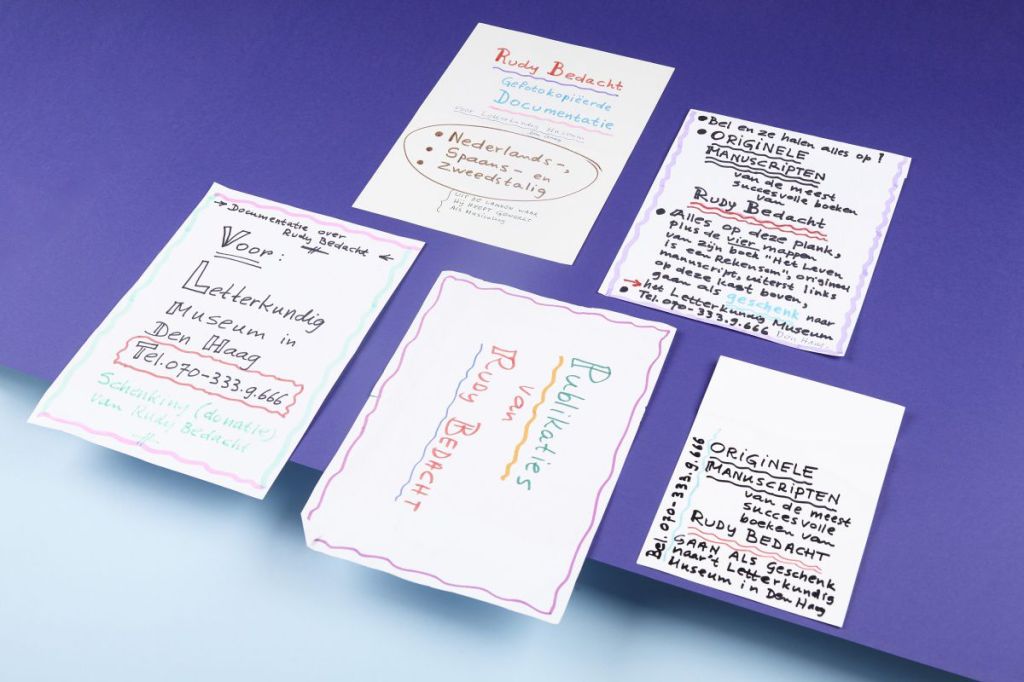 Rudy Bedacht
Gefotokopiëerde
Documentatie
voor Letterkundig Museum
Den Haag
• Nederlands-,
• Spaans- en
• Zweedstalig
UIT DE LANDEN WAAR
HIJ HEEFT GEWERKT
Als
• Bel en ze halen alles op!
• ORIGINELE
MANUSCRIPTEN
van de meest
succesvolle boeken
van
Rudy Bedacht
• Alles op deze plank,
plus de vier mappen
van zijn boek "Het Leven
is een Rekensom", origineel
manuscript, uiterst links
op deze kast boven,
gaan als geschenk naar
→ het Letterkundig Museum
• Tel. 070-333.9.666 Den Haag
→ Documentatie over
Rudy Bedacht ←
Voor:
Letterkundig
Museum in
Den Haag
Tel. 070-333.9.666
Schenking (donatie)
van Rudy Bedacht
Publikaties
van
Rudy BEDACHT
Bel. 070-333.9.666
ORIGINELE
MANUSCRIPTEN
van de meest
succesvolle
boeken van
Rudy BEDACHT
GAAN ALS Geschenk
naar't Letterkundig
Museum in Den Haag